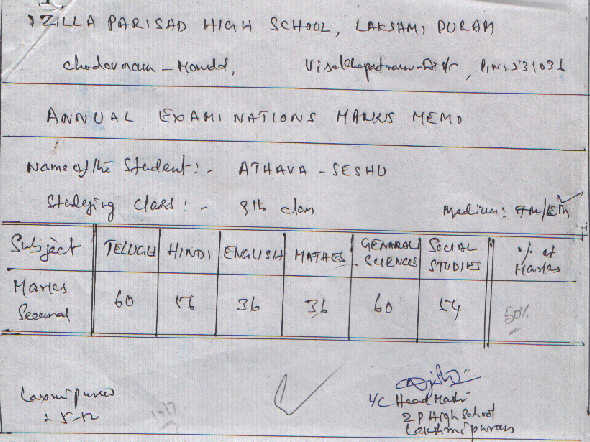 ZILLA PARISAD HIGH SCHOOL, LAKSHMI PURAM
Chodavaram - Mandal, Visakhapatnam - Dist, PIN: 531031
ANNUAL EXAMINATIONS MARKS MEMO
Name of the Student :- ATHAVA - SESHU
Studying Class :- 8th class Medium: TM/EM
Subject TELUGU HINDI ENGLISH MATHES GENARAL SCIENCES SOCIAL STUDIES % of Marks
Marks Secured 60 56 36 36 60 54 50%
I/C Head Master
Z P High School
Laxmipuram Lakshmipuram